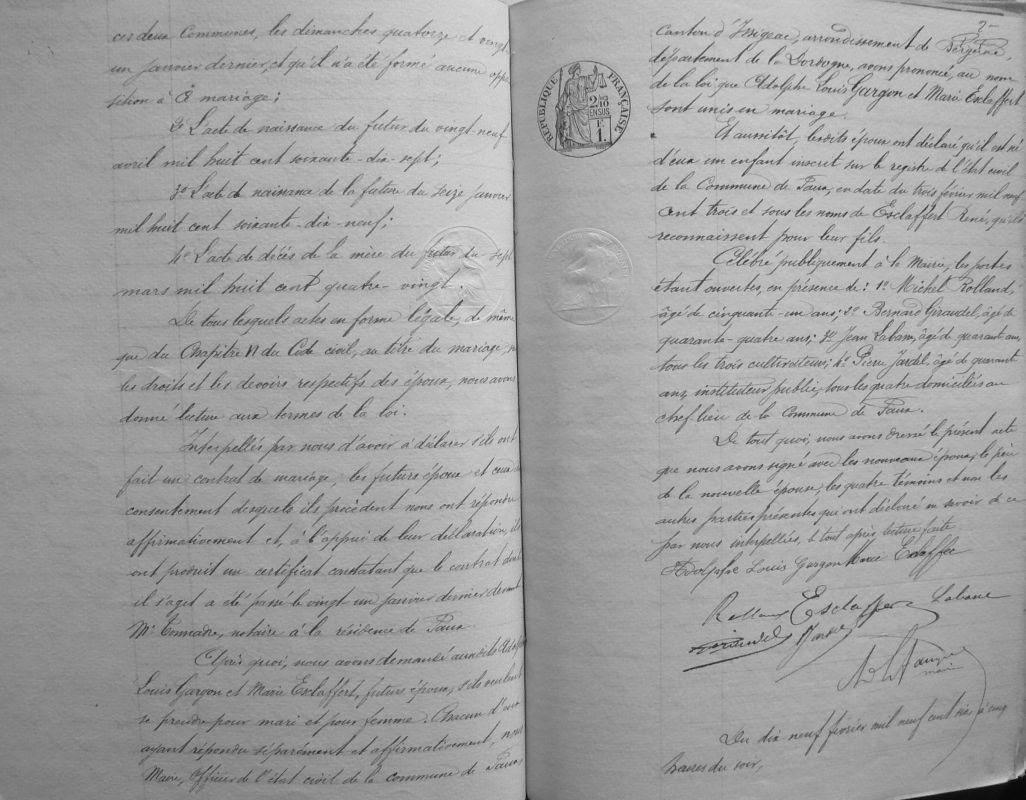 ces deux Communes, les dimanches quatorze et vingt-
un janvier dernier, et qu'il n'a été formé aucune oppo
sition à ce mariage;
2º L'acte de naissance du futur du vingt-neuf
avril mil huit cent soixante-dix-sept;
3º L'acte de naissance de la future du seize janvier
mil huit cent soixante-dix-neuf;
4º L'acte de décès de la mère du futur du sept
mars mil huit cent quatre-vingt.
De tous lesquels actes en forme légale, de même
que du Chapitre VI du Code civil, au titre du mariage,
les droits et les devoirs respectifs des époux, nous avons
donné lecture aux termes de la loi.
Interpellés par nous d'avoir à déclarer s'ils ont
fait un contrat de mariage, les futurs époux et ceux du
consentement desquels ils procèdent nous ont répondu
affirmativement et, à l'appui de leur déclaration, ils
ont produit un certificat constatant que le contrat dont
il s'agit a été passé le vingt-un janvier dernier devant
Mº notaire à la résidence de Faux.
Après quoi, nous avons demandé aux dits Adolphe
Louis Gargon et Marie Esclaffert, futurs époux, s'ils veulent
se prendre pour mari et pour femme. Chacun d'eux
ayant répondu séparément et affirmativement, nous
Maire, Officier de l'état civil de la commune de Faux
2
canton d'Issigeac, arrondissement de Bergerac,
département de la Dordogne, avons prononcé, au nom
de la loi, que Adolphe Louis Gargon et Marie Esclaffert
sont unis en mariage.
RÉPUBLIQUE FRANÇAISE
2/10 EN SUS
1F
Et aussitôt, lesdits époux ont déclaré qu'il est né
d'eux un enfant inscrit sur le registre de l'état civil
de la Commune de Faux, en date du trois février mil neuf
cent trois et sous les noms de Esclaffert René, qu'ils
reconnaissent pour leur fils.
Célébré publiquement à la Mairie, les portes
étant ouvertes, en présence de: 1º Michel Rolland,
âgé de cinquante-un ans; 2º Bernard Giraudel, âgé de
quarante-quatre ans; 3º Jean Labam, âgé de quarante ans,
tous les trois cultivateurs; 4º Pierre Jardel, âgé de quarante
ans, instituteur public, tous les quatre domiciliés au
chef-lieu de la Commune de Faux.
De tout quoi, nous avons dressé le présent acte
que nous avons signé avec les nouveaux époux, le père
de la nouvelle épouse, les quatre témoins et non les
autres parties présentes qui ont déclaré ne savoir de ce
par nous interpellées, le tout après lecture faite
Adolphe Louis Gargon Marie Esclaffer
Rolland Esclaffer Labane
Giraudel Jardel
maire
Du dix neuf février mil neuf cent six, à cinq
heures du soir,